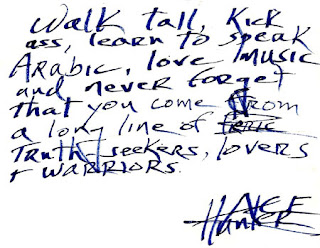 Walk tall, Kick
ass, learn to speak
Arabic, love music
and never forget
that you come from
a long line of
Truth-seekers, lovers
+ WARRIORS.